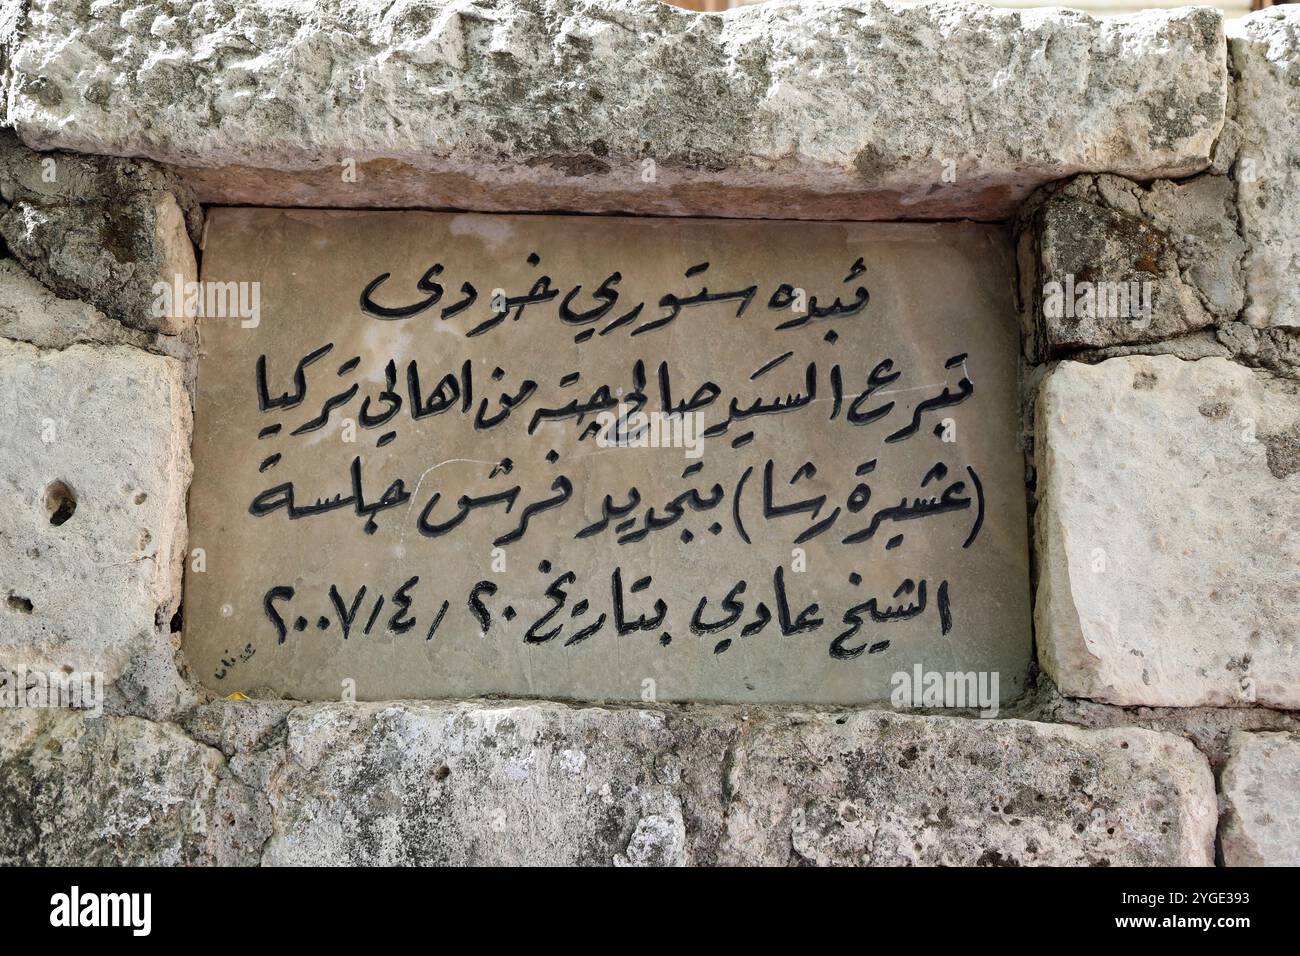 ئبده ستوري خودى
تبرع السيد صالح جته من اهالي تركيا
(عشيرة رشا) بتجديد فرش جلسة
الشيخ عادي بتاريخ ٢٠ / ٤ / ٢٠٠٧
عدنان
alamy
Image ID: 2YGE393
www.alamy.com